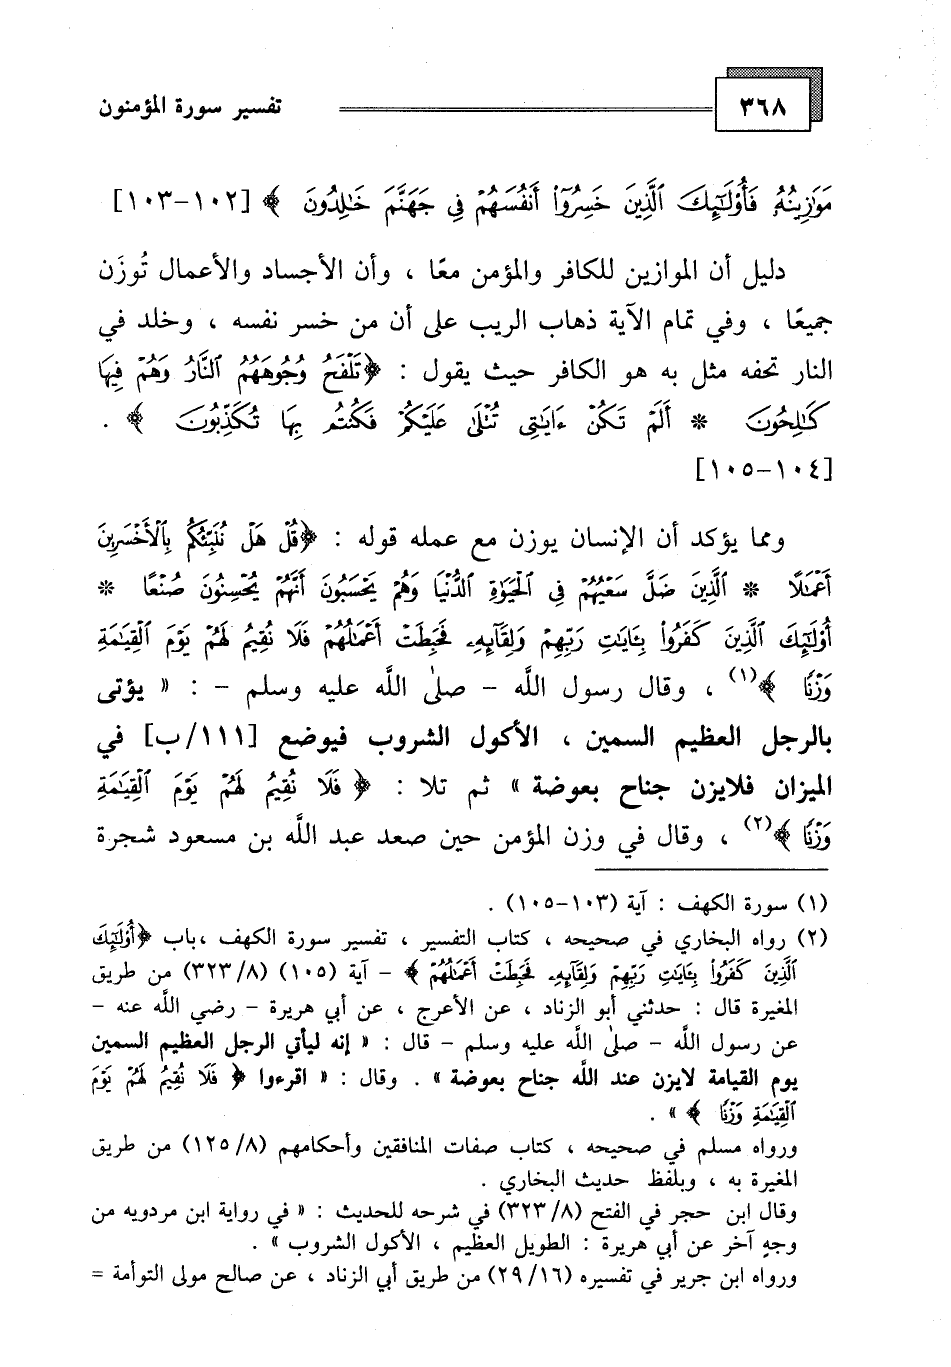 ٣٦٨ تفسير سورة المؤمنون
مَوَٰزِينُهُۥ فَأُوْلَٰٓئِكَ ٱلَّذِينَ خَسِرُوٓاْ أَنفُسَهُمۡ فِي جَهَنَّمَ خَٰلِدُونَ ﴾ [١٠٢-١٠٣]
دليل أن الموازين للكافر والمؤمن معًا ، وأن الأجساد والأعمال تُوزَن
جميعًا ، وفي تمام الآية ذهاب الريب على أن من خسر نفسه ، وخلد في
النار تحفه مثل به هو الكافر حيث يقول : ﴿تَلۡفَحُ وُجُوهَهُمُ ٱلنَّارُ وَهُمۡ فِيهَا
كَٰلِحُونَ * أَلَمۡ تَكُنۡ ءَايَٰتِي تُتۡلَىٰ عَلَيۡكُمۡ فَكُنتُم بِهَا تُكَذِّبُونَ ﴾ .
[١٠٤-١٠٥]
ومما يؤكد أن الإنسان يوزن مع عمله قوله : ﴿قُلۡ هَلۡ نُنَبِّئُكُم بِٱلۡأَخۡسَرِينَ
أَعۡمَٰلًا * ٱلَّذِينَ ضَلَّ سَعۡيُهُمۡ فِي ٱلۡحَيَوٰةِ ٱلدُّنۡيَا وَهُمۡ يَحۡسَبُونَ أَنَّهُمۡ يُحۡسِنُونَ صُنۡعًا *
أُوْلَٰٓئِكَ ٱلَّذِينَ كَفَرُواْ بِـَٔايَٰتِ رَبِّهِمۡ وَلِقَآئِهِۦ فَحَبِطَتۡ أَعۡمَٰلُهُمۡ فَلَا نُقِيمُ لَهُمۡ يَوۡمَ ٱلۡقِيَٰمَةِ
وَزۡنًا ﴾(١) ، وقال رسول اللَّه - صلى اللَّه عليه وسلم - : « يؤتى
بالرجل العظيم السمين ، الأكول الشروب فيوضع [١١١/ب] في
الميزان فلايزن جناح بعوضة » ثم تلا : ﴿ فَلَا نُقِيمُ لَهُمۡ يَوۡمَ ٱلۡقِيَٰمَةِ
وَزۡنًا ﴾(٢) ، وقال في وزن المؤمن حين صعد عبد اللَّه بن مسعود شجرة
(١) سورة الكهف : آية (١٠٣-١٠٥) .
(٢) رواه البخاري في صحيحه ، كتاب التفسير ، تفسير سورة الكهف ،باب ﴿أُوْلَٰٓئِكَ
ٱلَّذِينَ كَفَرُواْ بِـَٔايَٰتِ رَبِّهِمۡ وَلِقَآئِهِۦ فَحَبِطَتۡ أَعۡمَٰلُهُمۡ ﴾ - آية (١٠٥) (٣٢٣/٨) من طريق
المغيرة قال : حدثني أبو الزناد ، عن الأعرج ، عن أبي هريرة - رضي اللَّه عنه -
عن رسول اللَّه - صلى اللَّه عليه وسلم - قال : « إنه ليأتي الرجل العظيم السمين
يوم القيامة لايزن عند اللَّه جناح بعوضة » . وقال : « اقرءوا ﴿ فَلَا نُقِيمُ لَهُمۡ يَوۡمَ
ٱلۡقِيَٰمَةِ وَزۡنًا ﴾ » .
ورواه مسلم في صحيحه ، كتاب صفات المنافقين وأحكامهم (١٢٥/٨) من طريق
المغيرة به ، وبلفظ حديث البخاري .
وقال ابن حجر في الفتح (٣٢٣/٨) في شرحه للحديث : « في رواية ابن مردويه من
وجهٍ آخر عن أبي هريرة : الطويل العظيم ، الأكول الشروب » .
ورواه ابن جرير في تفسيره (٢٩/١٦) من طريق أبي الزناد ، عن صالح مولى التوأمة =